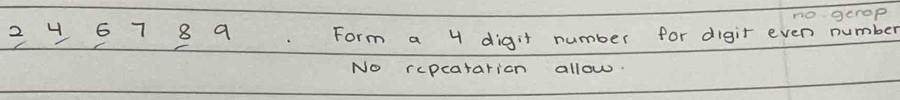 no gerop
2 4 6 7 8 9 . Form a 4 digit number for digit even number
No repeatation allow.